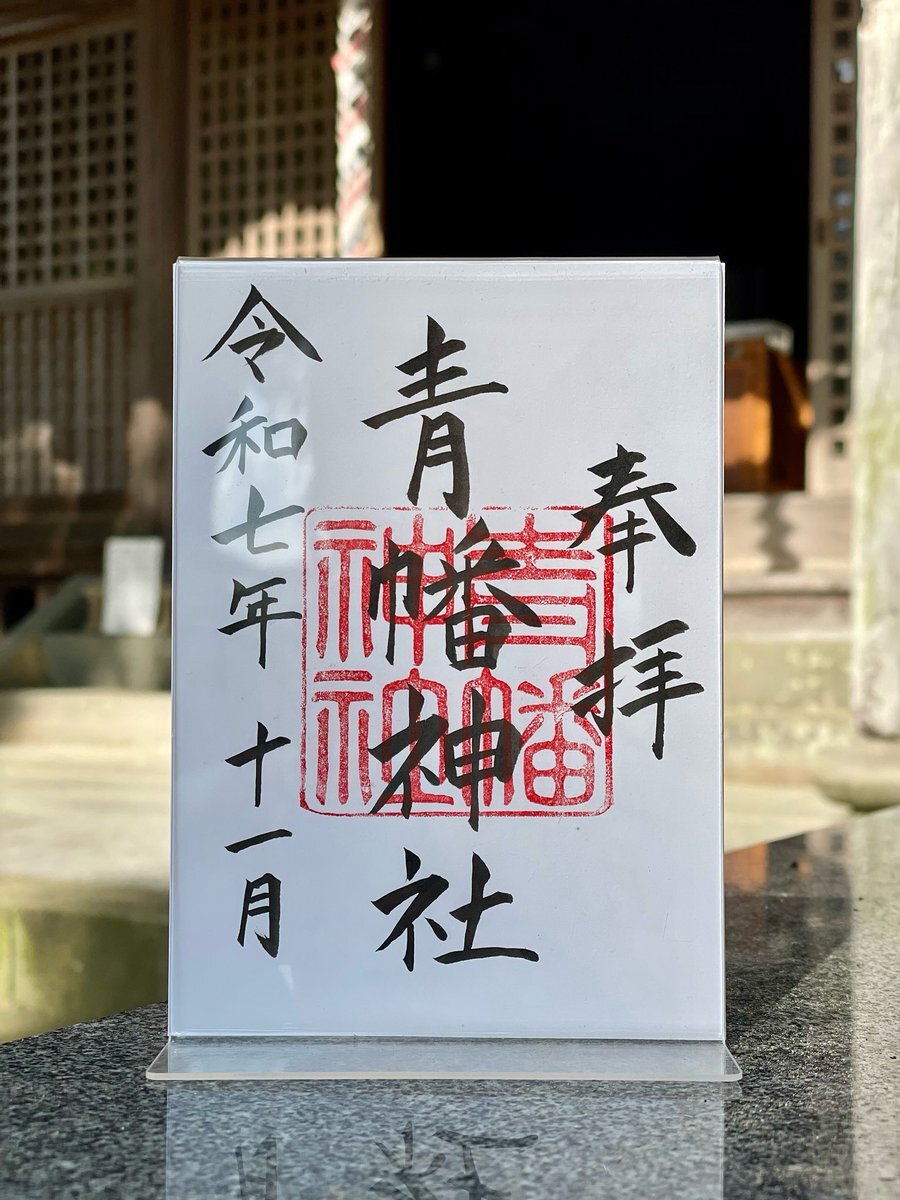 奉拝
青幡神社
青幡
神社
令和七年十一月